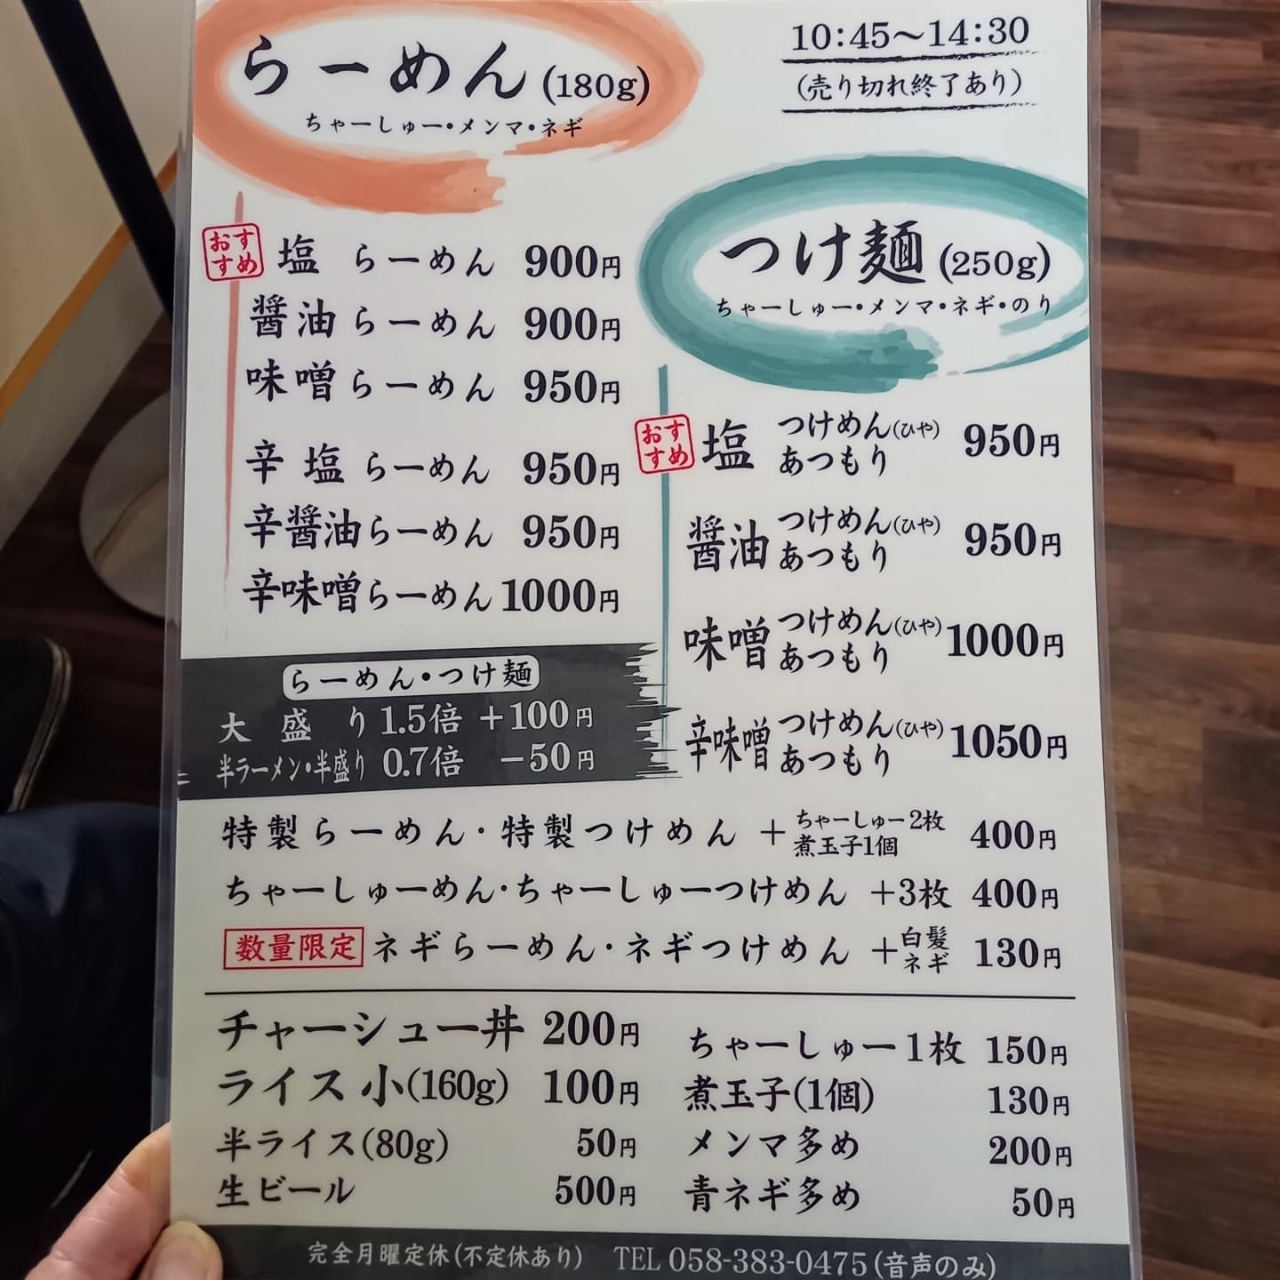 らーめん(180g)
ちゃーしゅー・メンマ・ネギ
10:45〜14:30
(売り切れ終了あり)
おすすめ
塩 らーめん 900円
醤油らーめん 900円
味噌らーめん 950円
辛塩らーめん 950円
辛醤油らーめん 950円
辛味噌らーめん 1000円
つけ麺(250g)
ちゃーしゅー・メンマ・ネギ・のり
おすすめ
塩 つけめん(ひや) 950円
あつもり
醤油 つけめん(ひや) 950円
あつもり
味噌 つけめん(ひや) 1000円
あつもり
辛味噌 つけめん(ひや) 1050円
あつもり
らーめん・つけ麺
大盛り 1.5倍 +100円
半ラーメン・半盛り 0.7倍 −50円
特製らーめん・特製つけめん +ちゃーしゅー2枚 400円
煮玉子1個
ちゃーしゅーめん・ちゃーしゅーつけめん +3枚 400円
数量限定 ネギらーめん・ネギつけめん +白髪ネギ 130円
チャーシュー丼 200円
ライス 小(160g) 100円
半ライス(80g) 50円
生ビール 500円
ちゃーしゅー1枚 150円
煮玉子(1個) 130円
メンマ多め 200円
青ネギ多め 50円
完全月曜定休(不定休あり) TEL 058-383-0475(音声のみ)